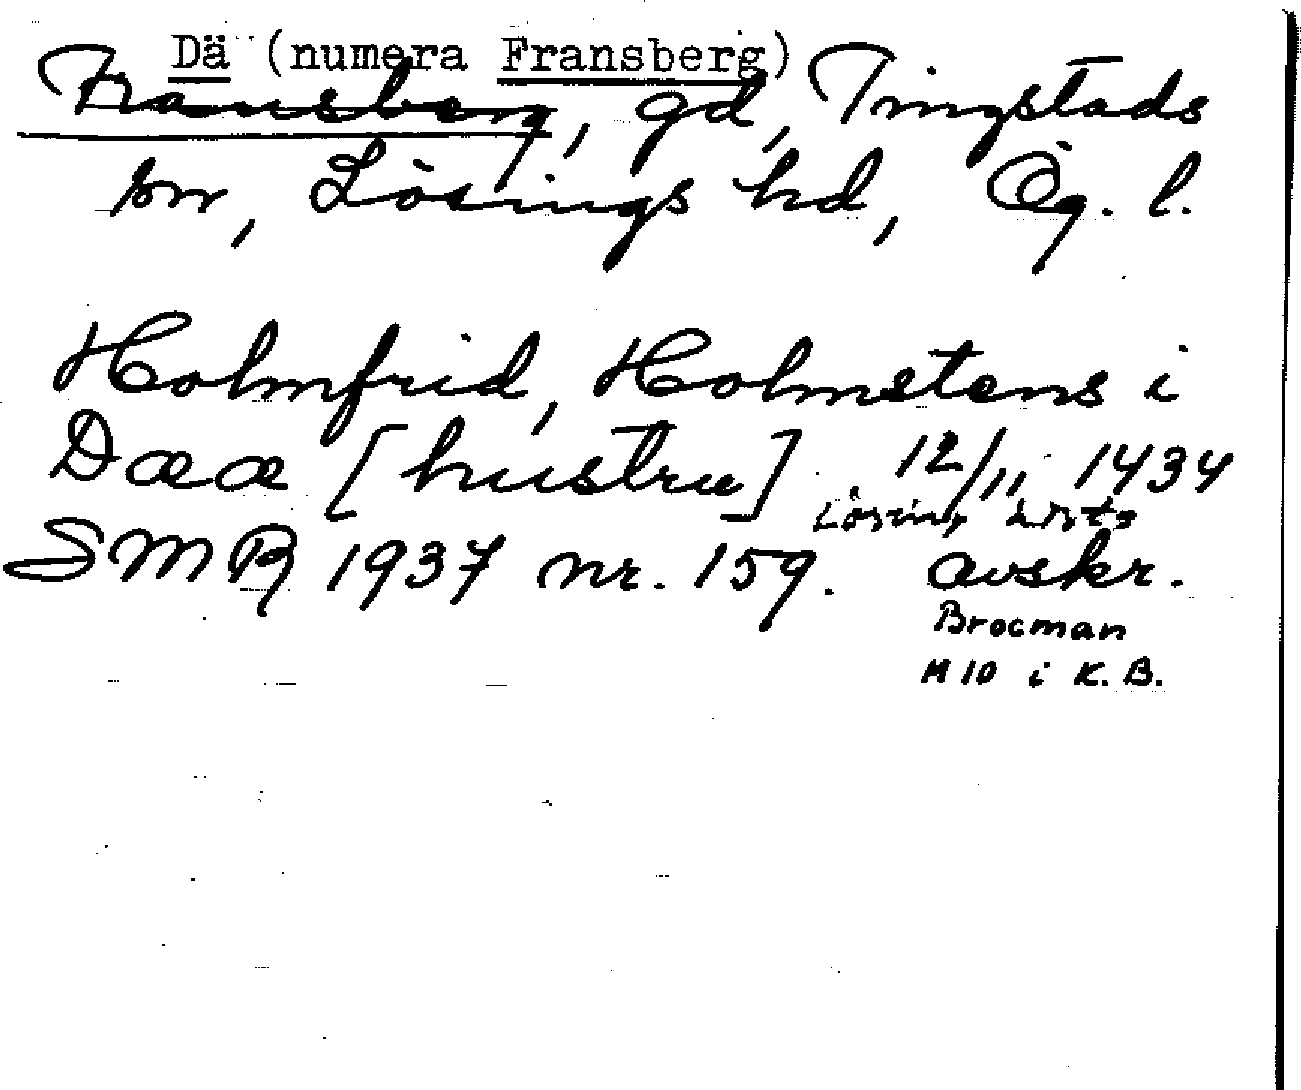 Dä (numera Fransberg)
Fransberg, gd, Tingstads
sn, Lösings hd, Ög. l.
Holmfrid, Holmstens i
Dææ [hustru] 12/11 1434
Lösing
SMR 1937 nr. 159. avskr.
Brocman
M 10 i K. B.